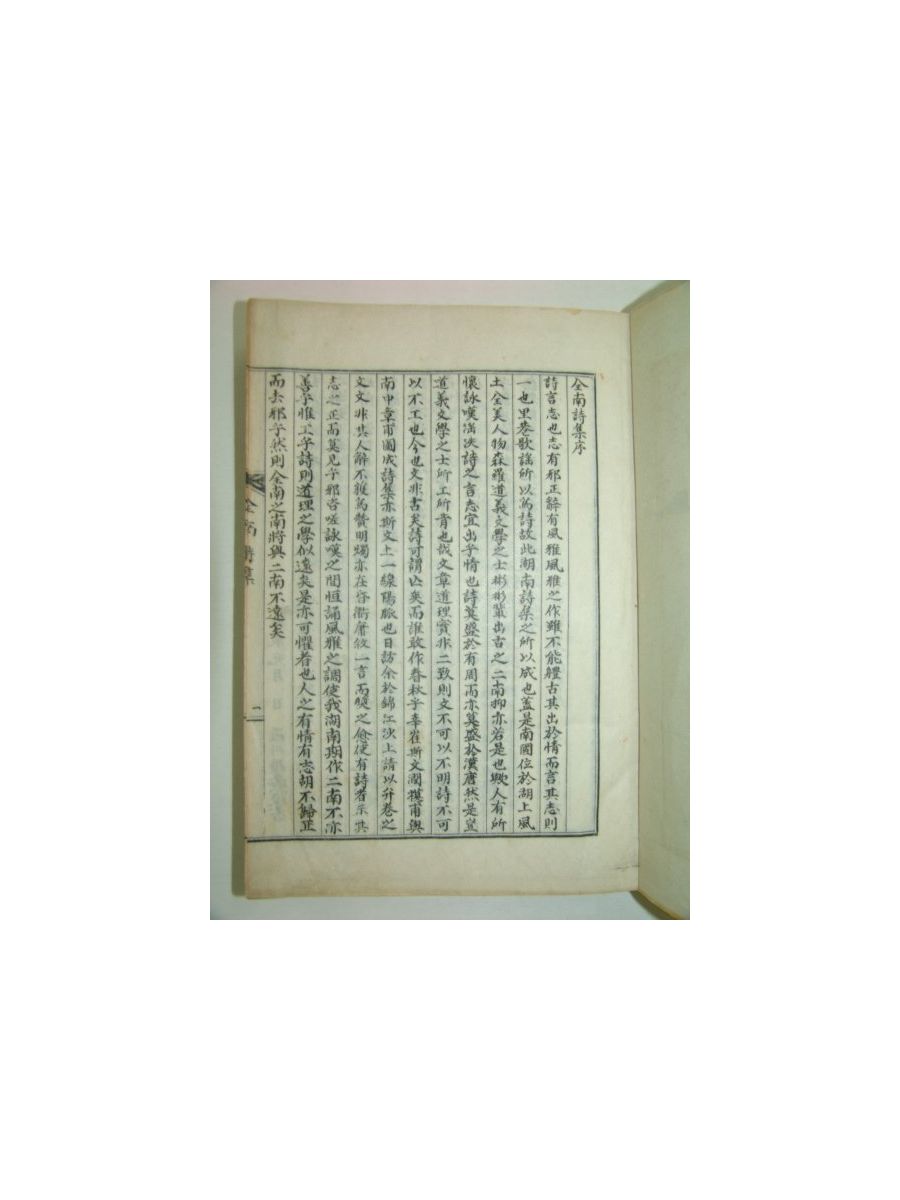 全南詩集序
詩言志也志有邪正辭有風雅風雅之作雖不能軆古其出於情而言其志則
一也里巷歌謠所以爲詩故此湖南詩集之所以成也盖是南國位於湖上風
土全美人物森羅道義文學之士彬彬輩出古之二南抑亦若是也歟人有所
懷詠嘆淊泆詩之言志宜出乎情也詩莫盛於有周而亦莫盛於漢唐然是豈
道義文學之士所工所肯也哉文章道理實非二致則文不可以不明詩不可
以不工也今也文非古矣詩可謂亾矣而誰敢作春秋乎幸崔斯文閏模甫與
南中章甫圖成詩集亦斯文上一線陽脉也日訪余於錦江沙上請以弁卷之
文文非其人辭不獲爲贊明燭亦在容衢磨敛一言而矣之愈使有詩者示其
志之正而莫見乎邪咨嗟詠嘆之間恒誦風雅之調使我湖南期作二南不亦
善乎惟工乎詩則道理之學似遠矣是亦可懼者也人之有情有志胡不歸正
而去邪乎然則全南之南將與二南不遠矣
全南詩集
一